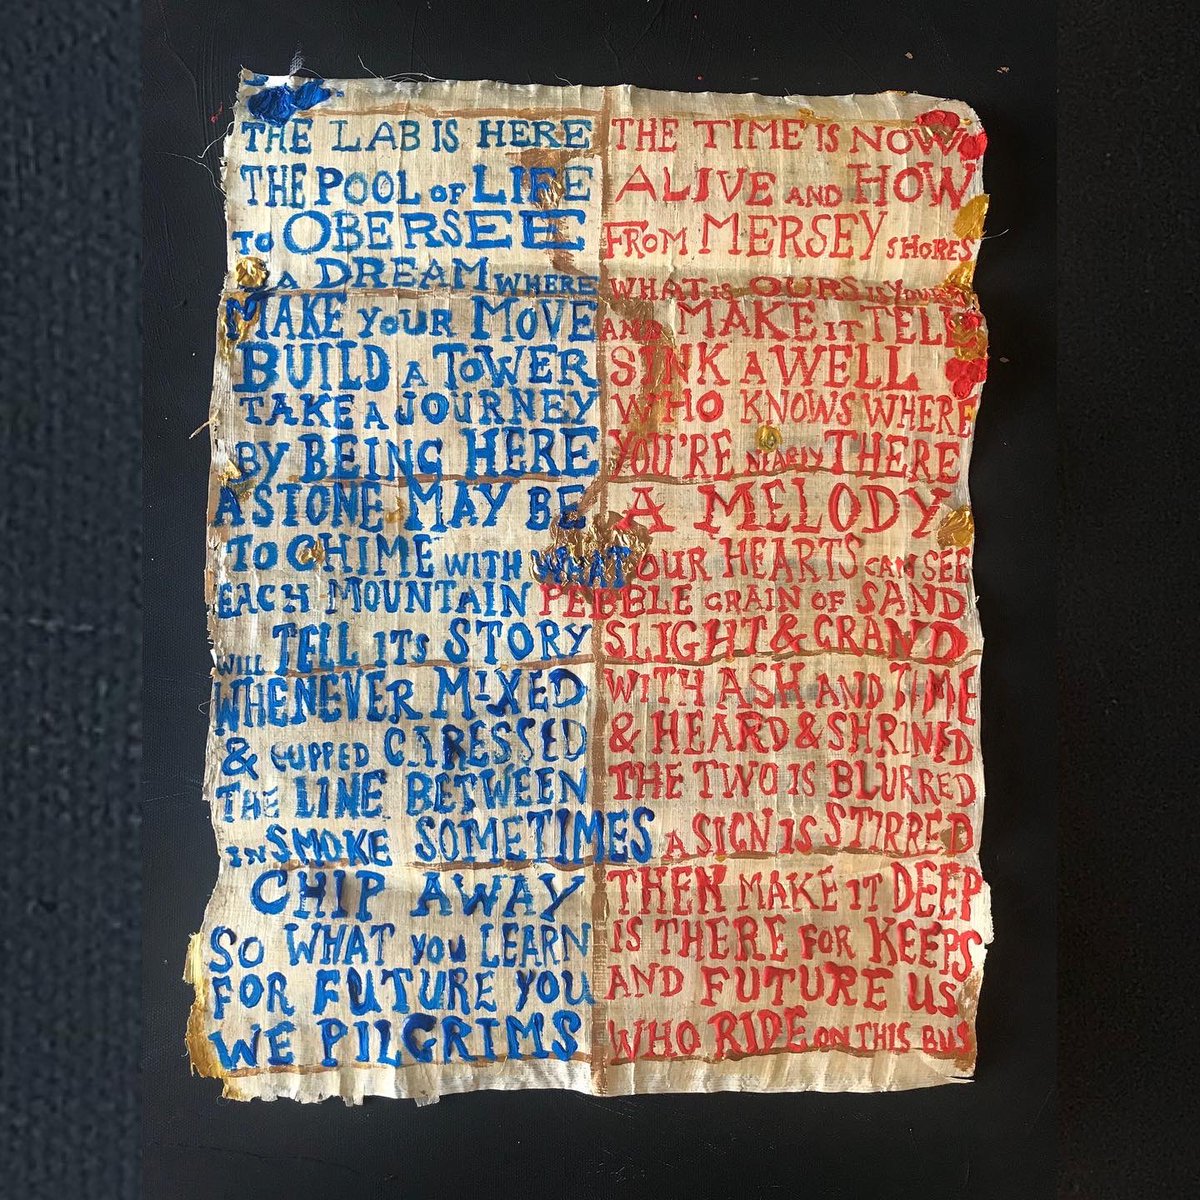 THE LAB IS HERE THE TIME IS NOW
THE POOL OF LIFE ALIVE AND HOW
TO OBERSEE FROM MERSEY SHORES
A DREAM WHERE WHAT IS OURS IS YOURS
MAKE YOUR MOVE AND MAKE IT TELL
BUILD A TOWER SINK A WELL
TAKE A JOURNEY WHO KNOWS WHERE
BY BEING HERE YOU'RE NEARLY THERE
A STONE MAY BE A MELODY
TO CHIME WITH WHAT OUR HEARTS CAN SEE
EACH MOUNTAIN PEBBLE GRAIN OF SAND
WILL TELL ITS STORY SLIGHT & GRAND
WHENEVER MIXED WITH ASH AND TIME
& CUPPED CARESSED & HEARD & SHRINED
THE LINE BETWEEN THE TWO IS BLURRED
IN SMOKE SOMETIMES A SIGN IS STIRRED
CHIP AWAY THEN MAKE IT DEEP
SO WHAT YOU LEARN IS THERE FOR KEEPS
FOR FUTURE YOU AND FUTURE US
WE PILGRIMS WHO RIDE ON THIS BUS